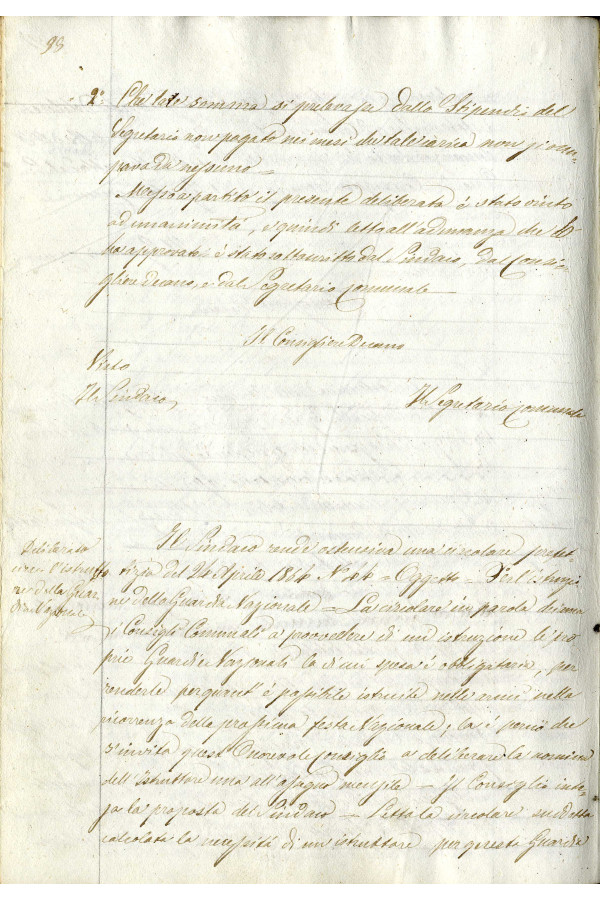 98
2° Che tale somma si prelevasse dallo Stipendio del
Segretario non pagato nei mesi che tale carica non si occu-
pava da nessuno —
Messo a partito il presente deliberato è stato vinto
ad unanimità, e quindi letto all'adunanza che lo
ha approvato è stato sottoscritto dal Sindaco, dal Consi-
gliere decano, e dal Segretario Comunale —
Il Consigliere Decano
Visto
Il Sindaco
Il Segretario Comunale
Deliberato
circa l'istrutto
re della Guar
dia Nazionale
Il Sindaco rende ostensiva una circolare prefet-
tizia del 24 Aprile 1864 N° — Oggetto — Per l'istruzio
ne della Guardia Nazionale — La circolare in parola chiama
i Consigli Comunali a provvedere di un istruzione le pro
prie Guardie Nazionali la di cui spesa è obbligatoria, per
renderle per quant'è possibile istruite nelle armi nella
ricorrenza della prossima festa Nazionale; la è perciò che
s'invita quest'Onorevole Consiglio a deliberare la nomina
dell'Istruttore una all'assegno mensile — Il Consiglio inte-
sa la proposta del Sindaco — Letta la circolare suddetta
calcolata la necessità di un istruttore per questa Guardia